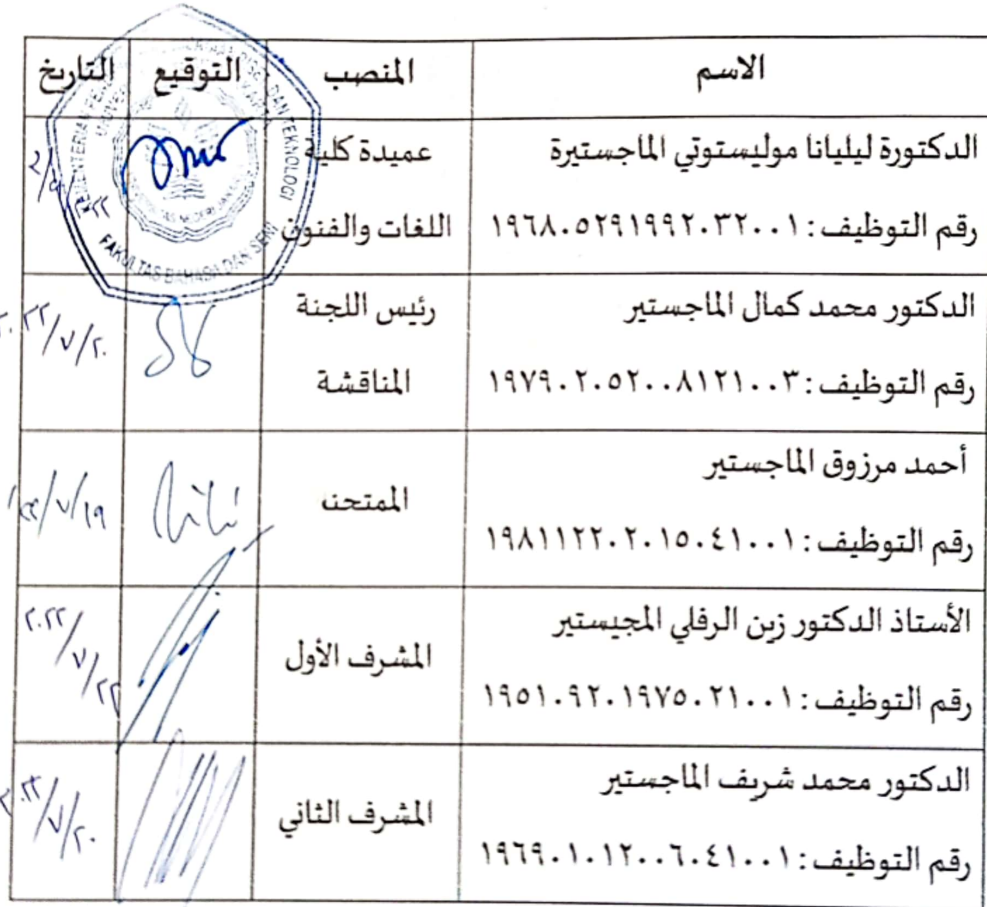 الاسم المنصب التوقيع التاريخ
الدكتورة ليليانا موليستوتي الماجستيرة
رقم التوظيف: ١٩٦٨٠٥٢٩١٩٩٢٠٣٢٠٠١
عميدة كلية
اللغات والفنون
FAKULTAS BAHASA DAN SENI
DAN TEKNOLOGI
الدكتور محمد كمال الماجستير
رقم التوظيف: ١٩٧٩٠٢٠٥٢٠٠٨١٢١٠٠٣
رئيس اللجنة
المناقشة
أحمد مرزوق الماجستير
رقم التوظيف: ١٩٨١١٢٢٠٢٠١٥٠٤١٠٠١
الممتحن
الأستاذ الدكتور زين الرفلي المجيستير
رقم التوظيف: ١٩٥١٠٩٢٠١٩٧٥٠٢١٠٠١
المشرف الأول
٢٠٢٢/٧/٢٢
الدكتور محمد شريف الماجستير
رقم التوظيف: ١٩٦٩٠١٠١٢٠٠٦٠٤١٠٠١
المشرف الثاني